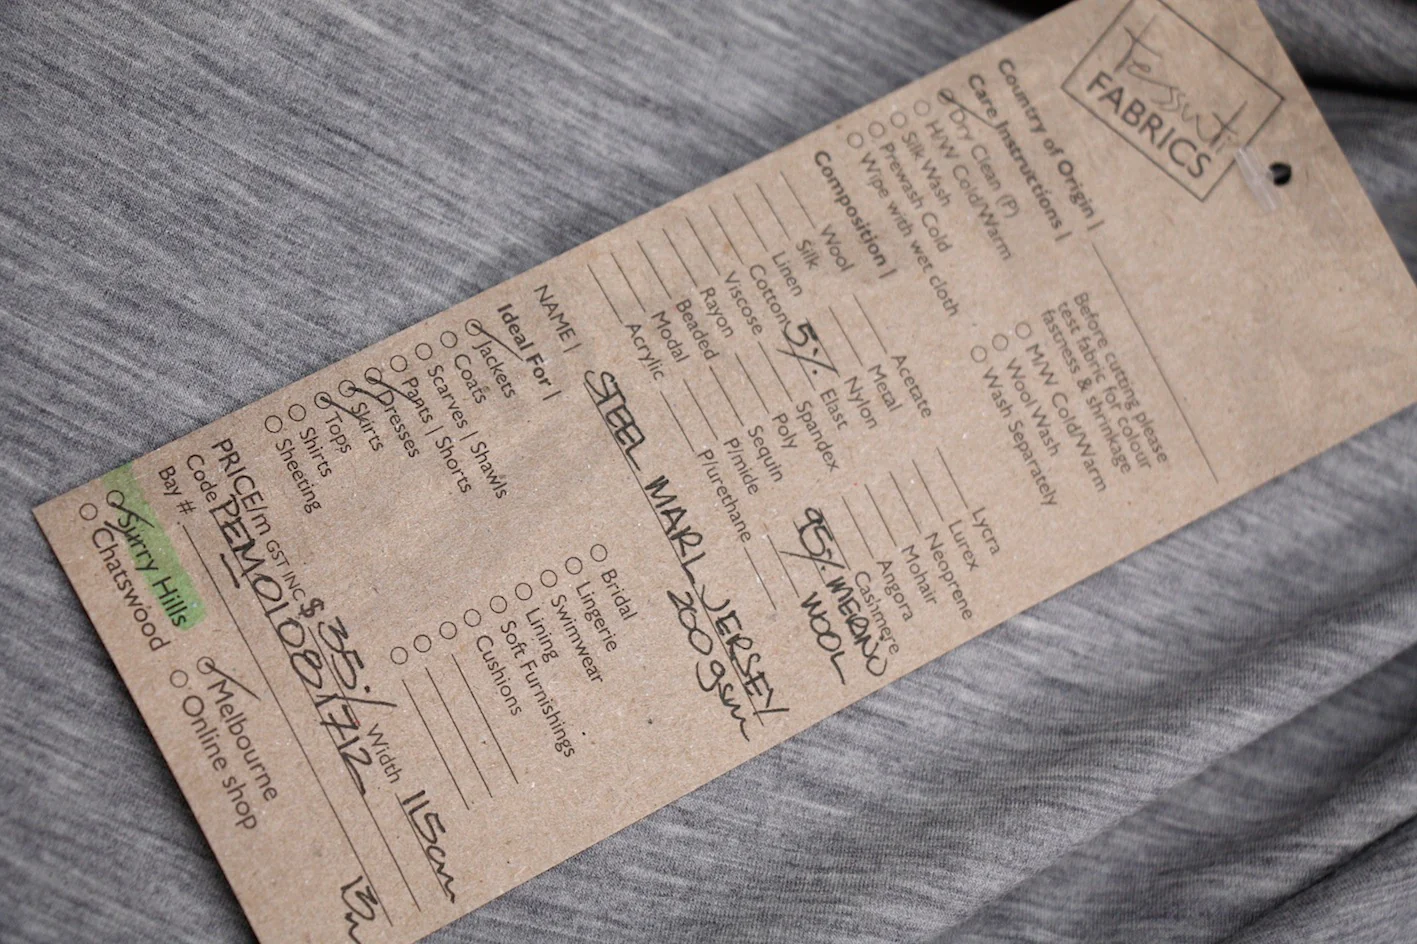 Tessuti
FABRICS
Country of Origin |
Care Instructions |
Dry Clean (P)
H/W Cold/Warm
Silk Wash
Prewash Cold
Wipe with wet cloth
Before cutting please
test fabric for colour
fastness & shrinkage
M/W Cold/Warm
Wool Wash
Wash Separately
Composition |
Wool
Silk
Linen
Cotton
Viscose
Rayon
Beaded
Modal
Acrylic
Acetate
Metal
Nylon
5% Elast
Spandex
Poly
Sequin
P/mide
P/urethane
Lycra
Lurex
Neoprene
Mohair
Angora
Cashmere
95% MERINO
WOOL
NAME | STEEL MARL JERSEY
200gsm
Ideal For |
Jackets
Coats
Scarves | Shawls
Pants | Shorts
Dresses
Skirts
Tops
Shirts
Sheeting
Bridal
Lingerie
Swimwear
Lining
Soft Furnishings
Cushions
PRICE/m GST INC $ 35./ Width 115cm
Code PEM01081712
Bay #
Surry Hills
Chatswood
Melbourne
Online shop